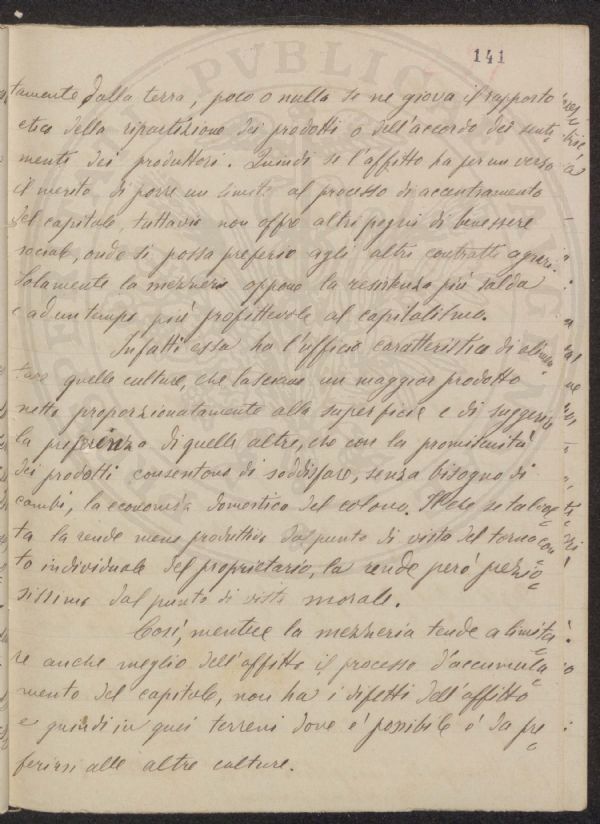 141
tamente dalla terra, poco o nulla se ne giova il rapporto
etico della ripartizione dei prodotti o dell'accordo dei senti
menti dei produttori. Quindi se l'affitto ha per un verso
il merito di porre un limite al processo di accentramento
del capitale, tuttavia non offre altri pegni di benessere
sociale, onde si possa preferire agli altri contratti agrari.
Solamente la mezzeria oppone la resistenza più salda
e ad un tempo più profittevole al capitalismo.
Infatti essa ha l'ufficio caratteristico di elimi
nare quelle culture, che lasciano un maggior prodotto
netto proporzionatamente alla superficie e di suggerire
la preferenza di quelle altre, che con la promiscuità
dei prodotti consentono di soddisfare, senza bisogno di
cambi, la economia domestica del colono. Il che se talvol
ta la rende meno produttiva dal punto di vista del tornacon
to individuale del proprietario, la rende però prezio
sissima dal punto di vista morale.
Così, mentre la mezzeria tende a limita
re anche meglio dell'affitto il processo d'accumula
mento del capitale, non ha i difetti dell'affitto
e quindi in quei terreni dove è possibile è da pre
ferirsi alle altre culture.